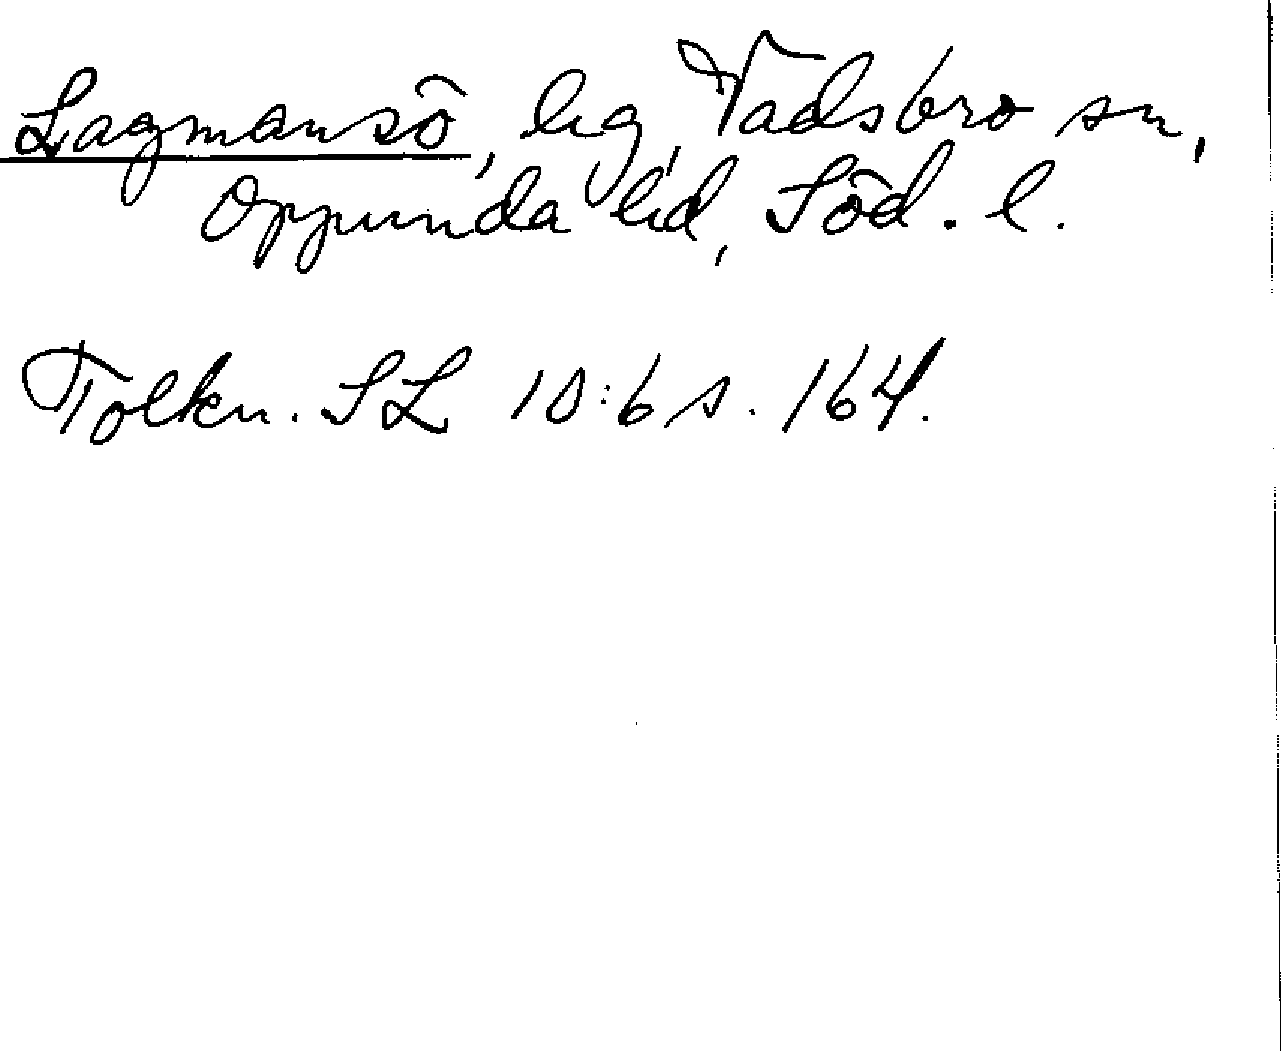 Lagmansö, hg, Vadsbro sn,
Oppunda hd, Söd. l.
Tolkn. SL 10:6 s. 164.